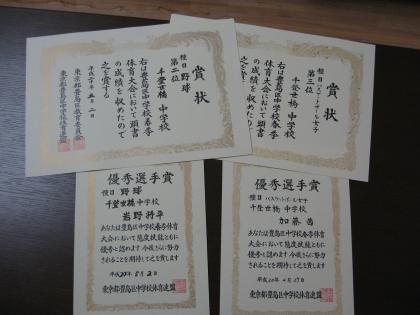 賞状
種目 野球
第二位
千登世橋 中学校
右は豊島区中学校春季
体育大会において頭書
の成績を収めたので
之を賞する
平成二十年五月二日
東京都豊島区教育委員会
東京都豊島区中学校体育連盟
賞状
種目 バスケットボール女子
第三位
千登世橋 中学校
右は豊島区中学校春季
体育大会において頭書
の成績を収めたので
之を賞する
優秀選手賞
種目 野球
千登世橋中学校
岩野将平
あなたは豊島区中学校春季体育
大会において態度技能ともに
優秀と認めます 今後さらに努力
されることを期待して之を賞します
平成20年5月2日
東京都豊島区中学校体育連盟
優秀選手賞
種目 バスケットボール女子
千登世橋 中学校
加藤
あなたは豊島区中学校春季体育
大会において態度技能ともに
優秀と認めます 今後さらに努力
されることを期待して之を賞します
平成20年4月27日
東京都豊島区中学校体育連盟